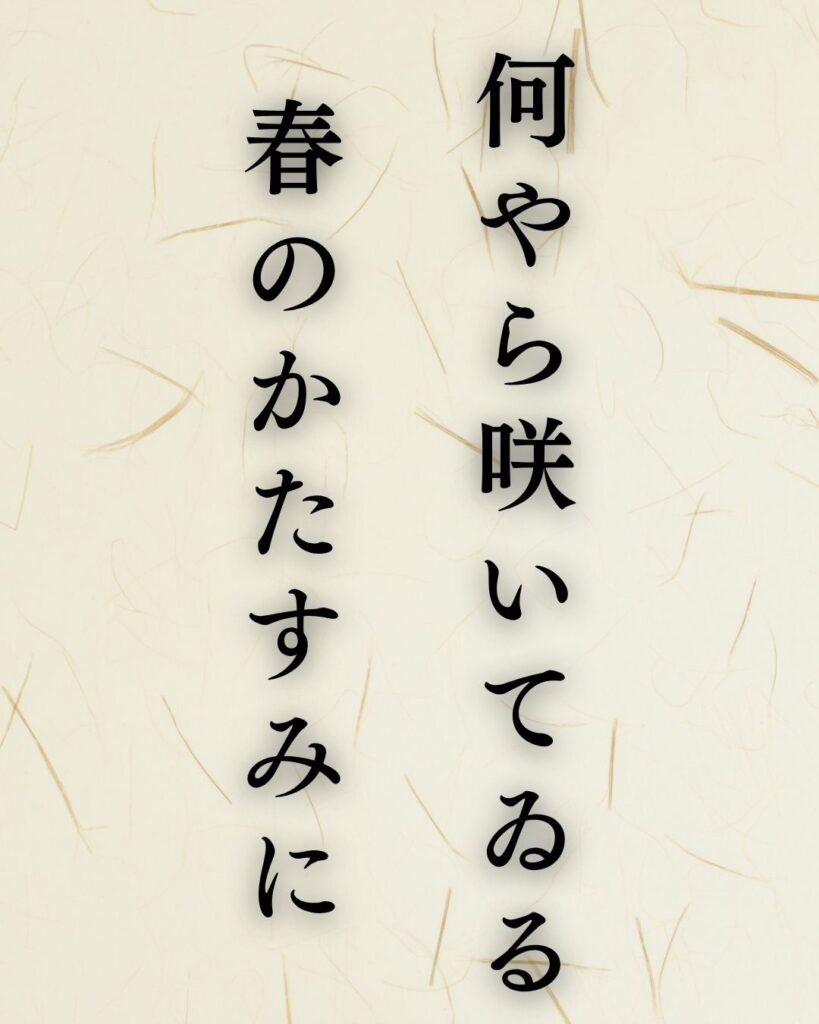 何やら咲いてゐる
春のかたすみに